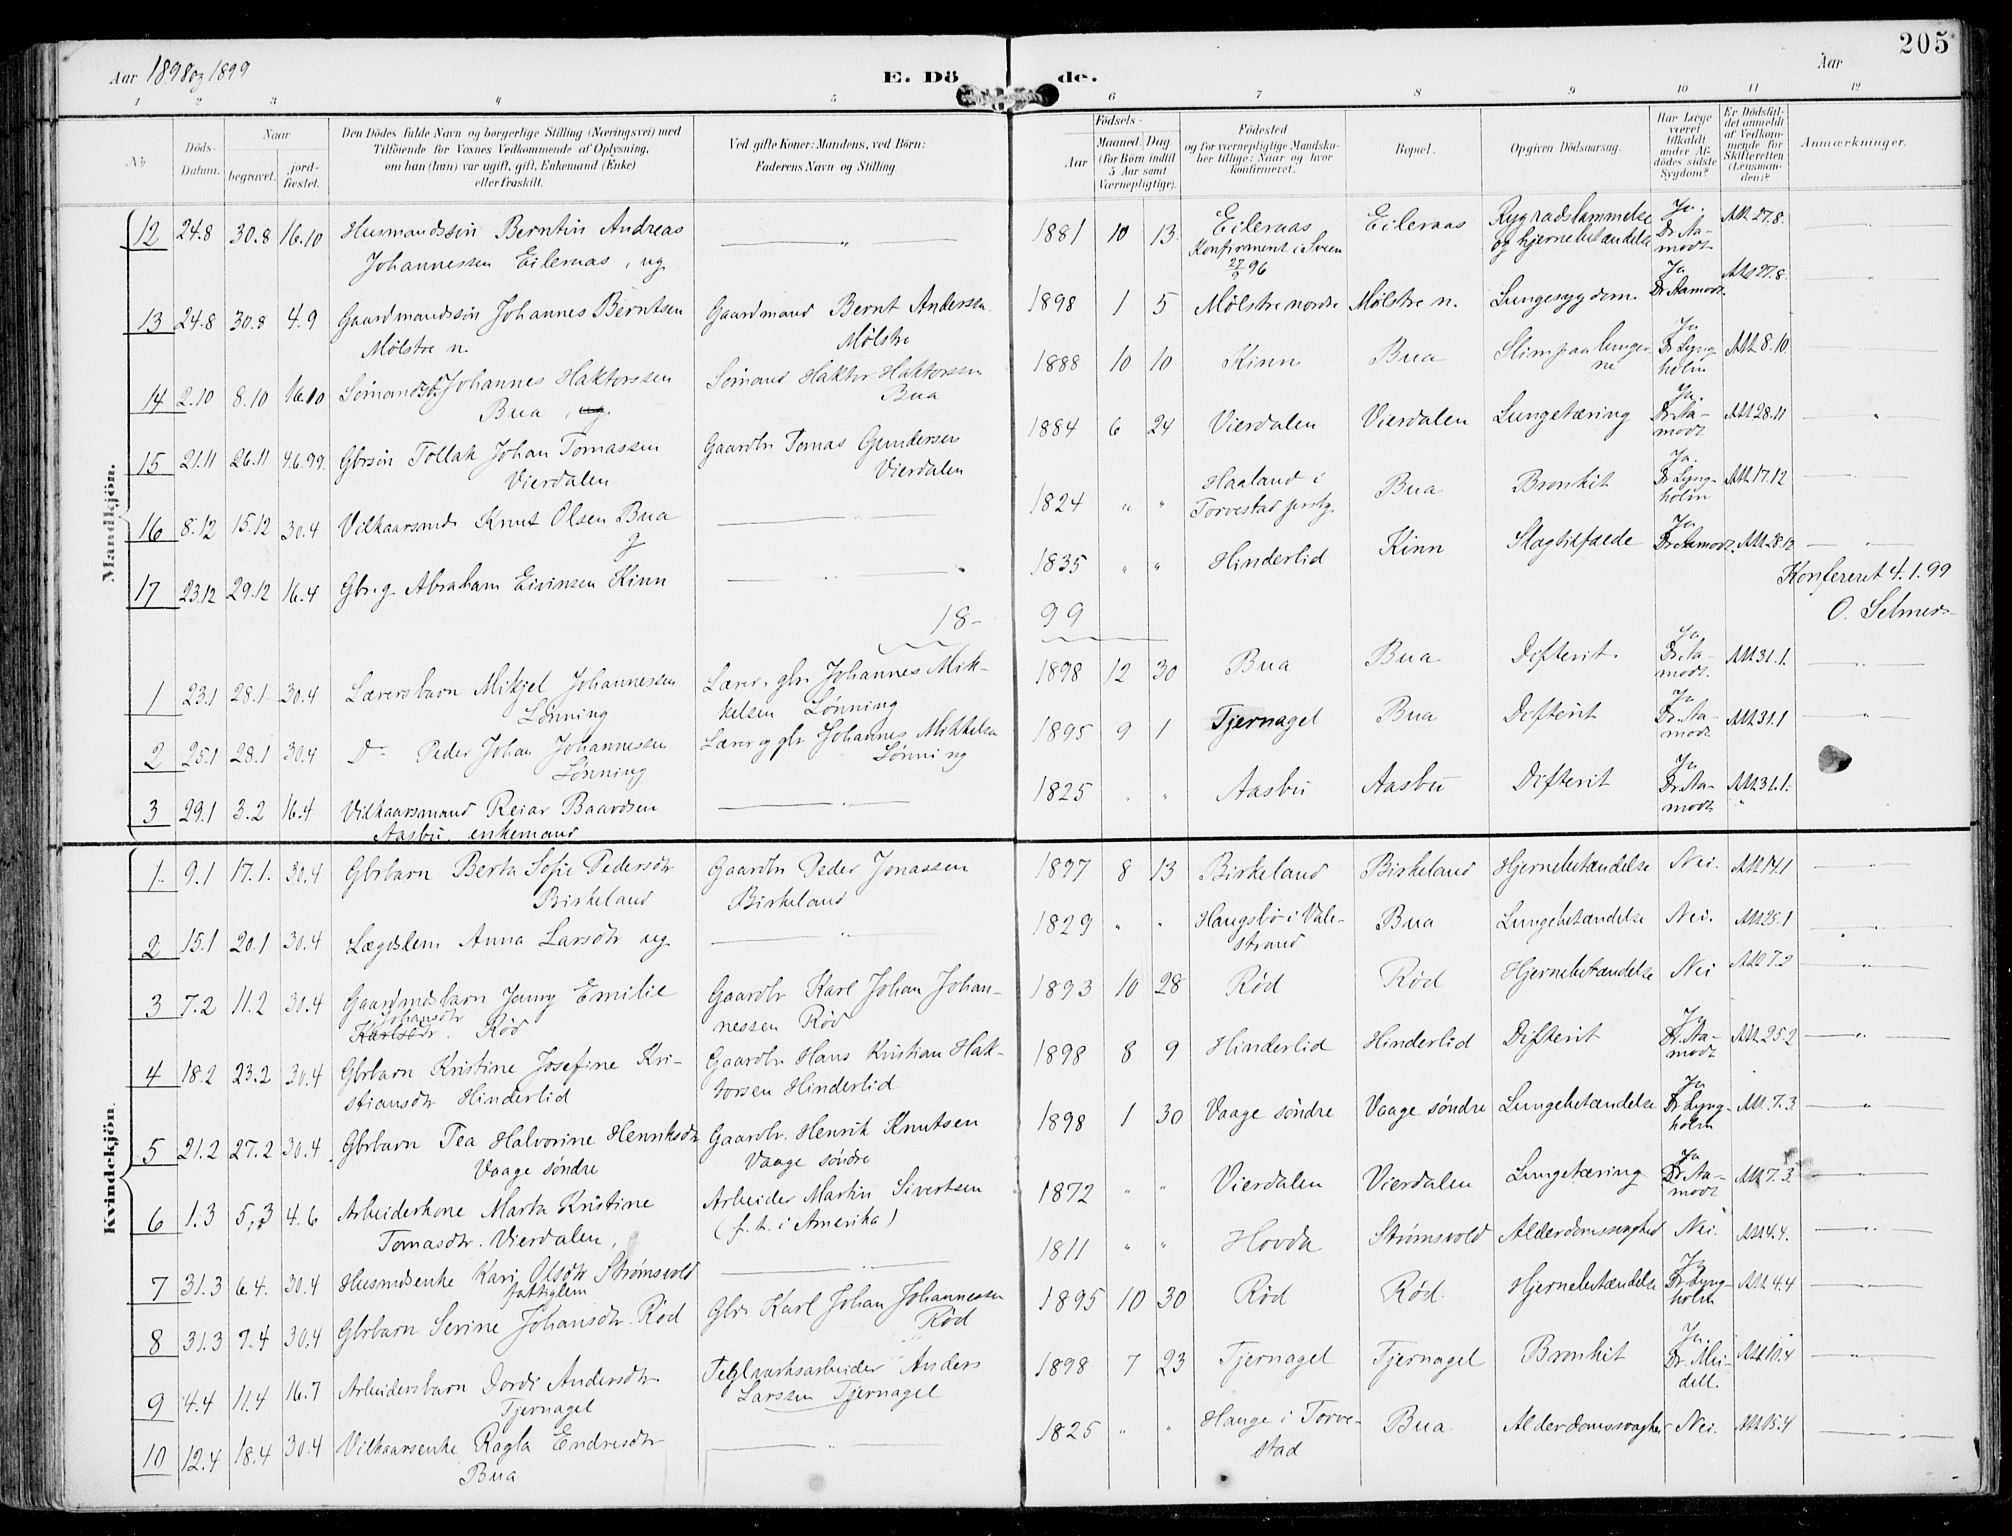 205
Aar 1898 og 1899
E. Dö de.
Aar
1 2 3 4 5 6 7 8 9 10 11 12
No
Döds-Datum.
Naar
begravet.
jord-fæstet.
Den Dödes fulde Navn og borgerlige Stilling (Næringsvei) med
Tilföiende for Voxnes Vedkommende af Oplysning,
om han (hun) var ugift, gift, Enkemand (Enke)
eller fraskilt.
Ved gifte Koner: Mandens, ved Börn:
Faderens Navn og Stilling.
Födsels-
Aar
Maaned. Dag
(for Börn indtil
5 Aar samt
Værnepligtige).
Födested
og for værnepligtige Mandskaber tillige: Naar og hvor
konfirmeret.
Bopæl.
Opgiven Dödsaarsag.
Har Læge
været
tilkaldt
under Afdödes sidste
Sygdom?
Er Dödsfaldet anmeldt
af Vedkommende for
Skifteretten
(Lensmanden)?
Anmærkninger.
Mandkjön.
12 24.8 30.8 16.10 Husmandssön Berntin Andreas Johannessen Eileraas, ug. 1881 10 13 Eileraas Konfirmert i Sveen 27/9 96 Eileraas Rygradslammelse og hjernebetændelse Ja. Dr. Aamodt Att 27.8.
13 24.8 30.8 4.9 Gaardmandssön Johannes Berntsen Mølstre n. Gaardmand Bernt Andersen Mølstre 1898 1 5 Mølstre nordre Mølstre n. Lungesygdom. Ja Dr. Aamodt. Att 27.8.
14 2.10 8.10 16.10 Sømandss. Johannes Haktorssen Bua, ug. Sømand Haktor Haktorssen Bua 1888 10 10 Kinn Bua Slim paa lungerne Ja Dr Lyngholm Att 8.10.
15 21.11 26.11 4.6.99. Gbrsön Tollak Johan Tomassen Vierdalen Gaardbr Tomas Gundersen Vierdalen 1884 6 24 Vierdalen Vierdalen Lungetæring Ja. Dr. Aamodt Att 28.11
16 8.12 15.12 30.4 Vilkaarsmd. Knut Olsen Bua g 1824 " " Haaland i Torvestad prstg. Bua Bronkit Ja. Dr Lyngholm Att 17.12
17 23.12 29.12 16.4 Gbr. g. Abraham Eivinsen Kinn 1835 " " Hinderlid Kinn Slagtilfælde Ja Dr Aamodt. Att 28.12
Konfereret 4.1.99
O. Selmer
18- 99
1 23.1 28.1 30.4 Lærersbarn Mikjel Johannessen Lønning Lærer, gbr. Johannes Mikkelsen Lønning 1898 12 30 Bua Bua Difterit. Ja Dr. Aamodt. Att 31.1.
2 25.1 28.1 30.4 Do Peder Johan Johannessen Lønning Lærer og gbr Johannes Mikkelsen Lønning 1895 9 1 Tjernagel Bua Difterit Ja Dr. Aamodt Att 31.1
3 29.1 3.2 16.4 Vilkaarsmand Reiar Baardsen Aasbu, enkemand 1825 " " Aasbu Aasbu Difterit Ja Dr. Aamodt Att 31.1.
Kvindekjön.
1. 9.1 17.1. 30.4 Gbrbarn Berta Sofie Pedersdtr Birkeland Gaardbr Peder Jonassen Birkeland 1897 8 13 Birkeland Birkeland Hjernebetændelse Nei. Att 14.1
2 15.1 20.1 30.4 Lægdslem Anna Larsdtr ug 1829 " " Haugsbö i Valestrand Bua Lungebetændelse Nei. Att 25.1
3 7.2 11.2 30.4 Gaardmdsbarn Jenny Emilie Karlsdtr. Johansdtr Röd Gaardbr Karl Johan Johannessen Röd 1893 10 28 Röd Röd Hjernebetændelse Nei Att 7.2
4 18.2 23.2 30.4 Gbrbarn Kristine Josefine Kristiansdtr Hinderlid Gaardbr Hans Kristian Haktorsen Hinderlid 1898 8 9 Hinderlid Hinderlid Difterit Ja Dr. Aamodt Att. 25.2
5 21.2 27.2 30.4 Gbrbarn Tea Halvorine Henriksdtr Vaage söndre Gaardbr. Henrik Knutsen Vaage söndre 1898 1 30 Vaage söndre Vaage söndre Lungebetændelse Ja Dr Lyngholm Att. 7.3
6 1.3 5.3 4.6 Arbeiderkone Marta Kristine Tomasdtr. Vierdalen, Arbeider Martin Sivertsen (f. t. i Amerika) 1872 " " Vierdalen Vierdalen Lungetæring Ja Dr. Aamodt Att 7.3
7 31.3 6.4. 30.4 Husmdsenke Kari Olsdtr Strømsvold fattiglem 1811 " " Hovda Strømsvold Alderdomssvaghed Nei. Att 4.4.
8 31.3 7.4 30.4 Gbrbarn Serine Johansdtr Röd Gbr. Karl Johan Johannessen Röd 1895 10 30 Röd Röd. Hjernebetændelse Ja Dr. Lyngholm Att. 4.4
9 4.4 11.4 16.7 Arbeidersbarn Dordi Andersdtr Tjernagel Teglværksarbeider Anders Larssen Tjernagel 1898 7 23 Tjernagel Tjernagel Bronkit Ja. Dr. Meidell. Att 11.4
10 12.4 18.4 30.4 Vilkaarsenke Ragla Endresdtr Bua 1825 " " Hauge i Torvestad Bua Alderdomssvaghed Nei. Att 15.4